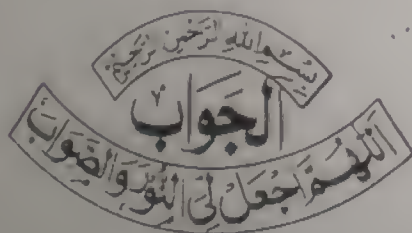 بِسْمِ اللهِ الرَّحْمٰنِ الرَّحِيْمِ
الجَوَابُ
اَللّٰهُمَّ اجْعَلْ لِیَ النُّوْرَ وَالصَّوَابَ